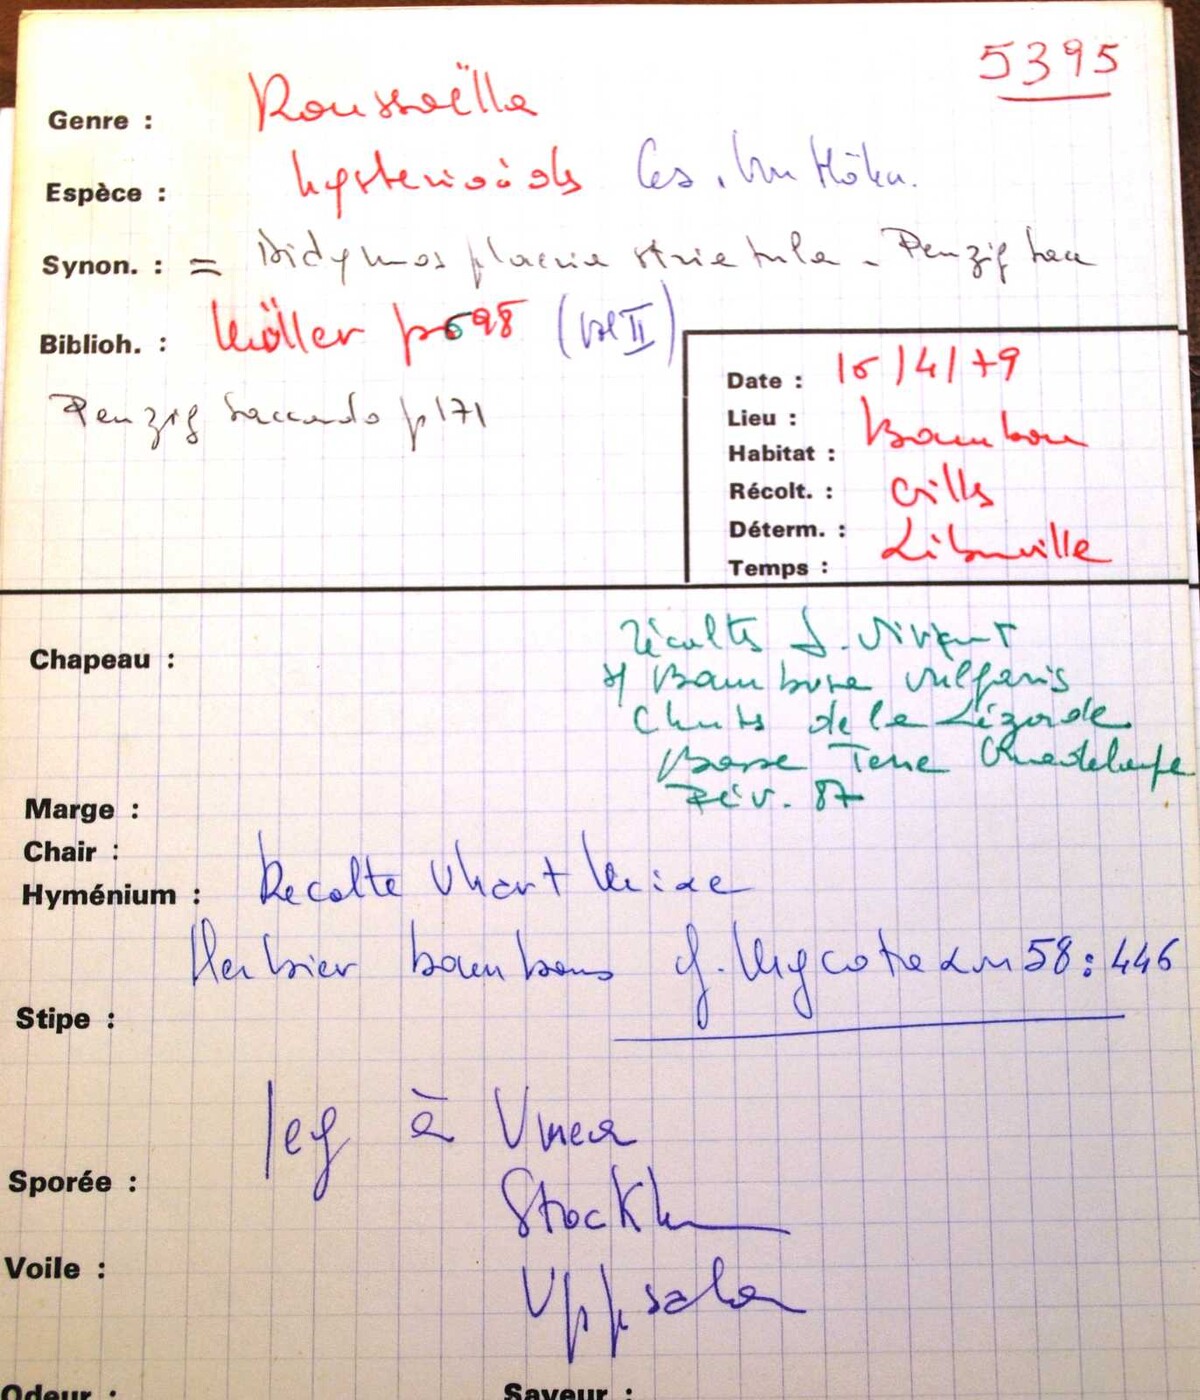 5395
Genre : Roussoëlla
Espèce : hysterioïdes Ces. Von Höhn.
Synon. : = Didymosphaeria striatula - Penzig Sacc
Biblioh. : Müller p 698 (vol II)
Penzig Saccardo p 171
Date : 15/4/79
Lieu : Bambou
Habitat :
Récolt. : Gilles
Déterm. : Libreville
Temps :
Chapeau : récolte J. Vivant
s/ Bambusa vulgaris
Chutes de la Lézarde
Basse Terre Guadeloupe
Fév. 87
Marge :
Chair :
Hyménium : Recolte
Herbier bambous cf. Mycotaxon 58 : 446
Stipe :
leg à Umea
Sporée : Stockh
Voile : Uppsala
Odeur : Saveur :